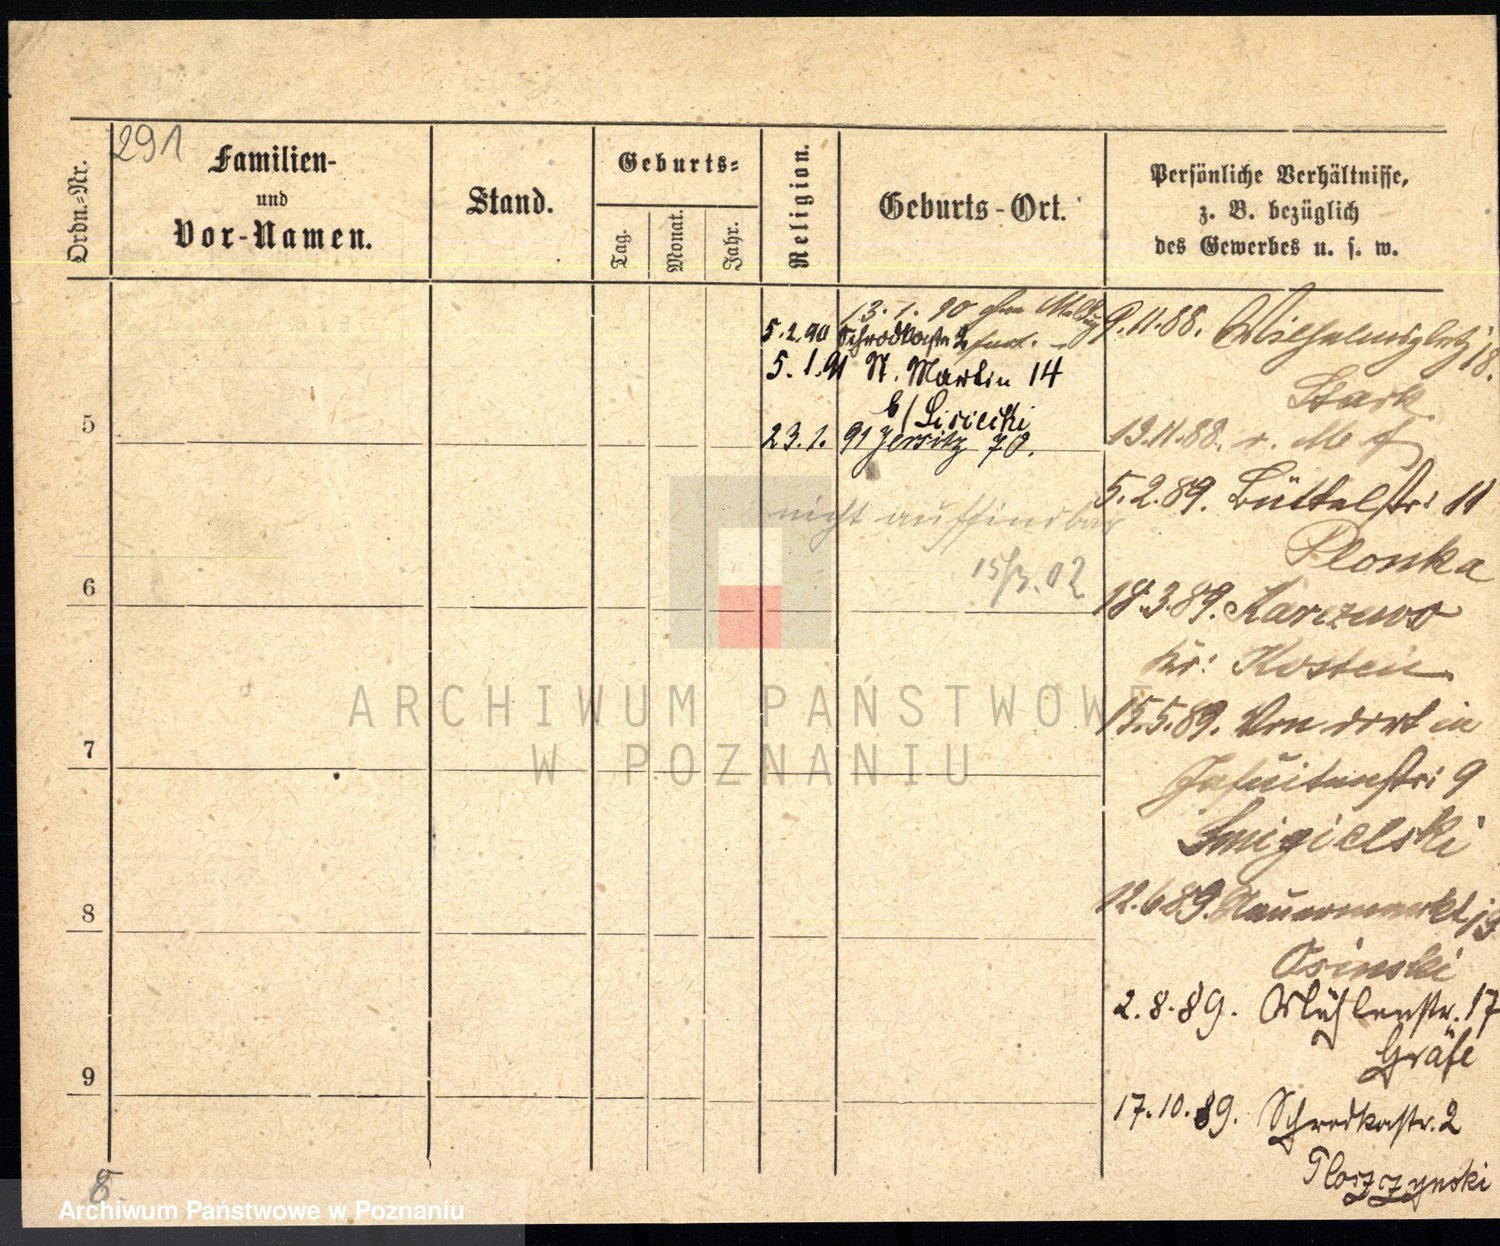 291
Ordn.-Nr.
Familien-
und
Vor-Namen.
Stand.
Geburts-
Tag.
Monat.
Jahr.
Religion.
Geburts-Ort.
Persönliche Verhältnisse,
z. B. bezüglich
des Gewerbes u. s. w.
13. 1. 90
5.2.90 Schrodkastr 2
5. 1. 91 St. Martin 14
b/ Siriecki
23. 1. 91 Jersitz 70.
nicht auffindbar
02
9.11.88. Wilhelmsplatz 18.
Stark
13.11.88.
5.2.89. Büttelstr: 11
Plonka
18.3.89. Karczewo
Kr: Kosten
15.5.89. Von dort in
Jesuitenstr: 9
Smigielski
12.6.89. Neuermarkt
Osinski
2. 8. 89. Mühlenstr. 17
Gräfe
17. 10. 89. Schrodkastr. 2
Ploszczynski
5
6
7
8
9
8
ARCHIWUM PAŃSTWOWE
W POZNANIU
Archiwum Państwowe w Poznaniu